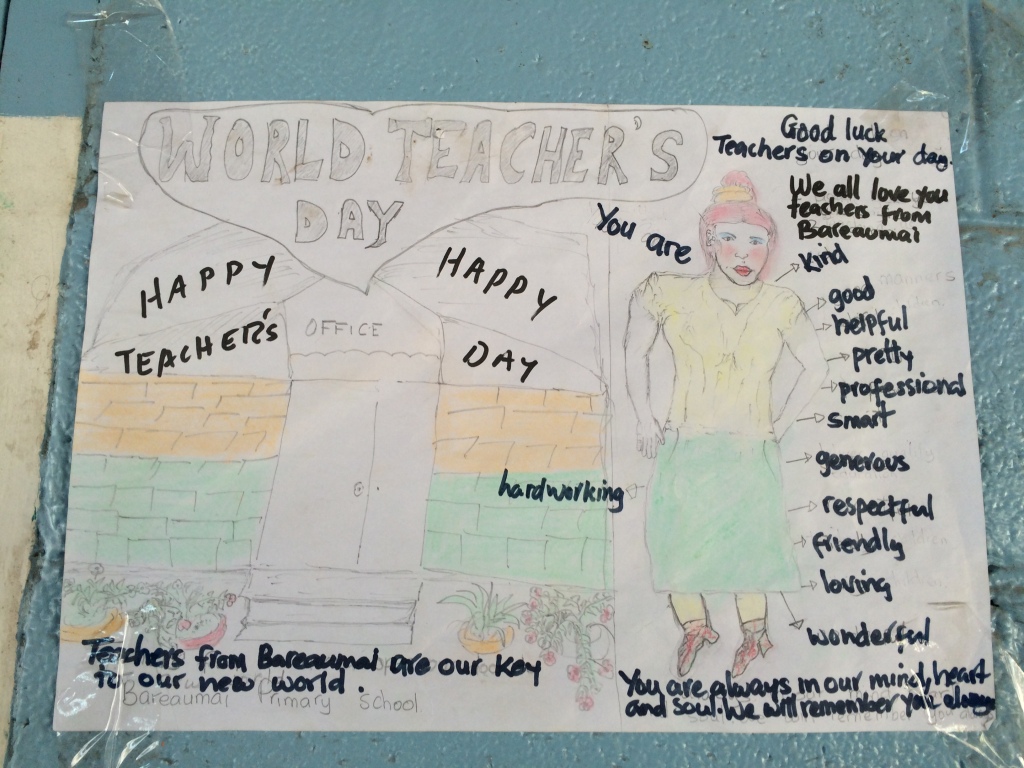 WORLD TEACHER'S
DAY
HAPPY
TEACHER'S
HAPPY
DAY
OFFICE
Good luck
Teachers on your day.
We all love you
teachers from
Bareaumai
You are
kind
good
helpful
pretty
professional
smart
generous
respectful
friendly
loving
wonderful
hardworking
Teachers from Bareaumai are our key
to our new world.
Bareaumai Primary School.
You are always in our mind, heart
and soul. We will remember you always